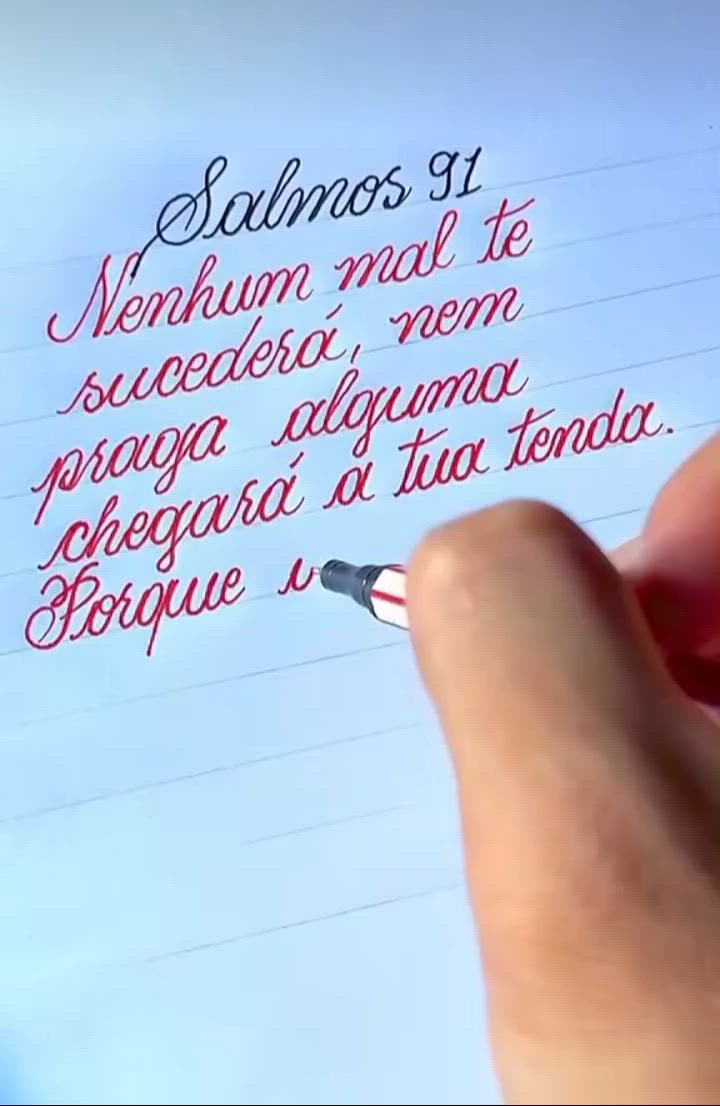 Salmos 91
Nenhum mal te
sucederá, nem
praga alguma
chegará a tua tenda.
Porque